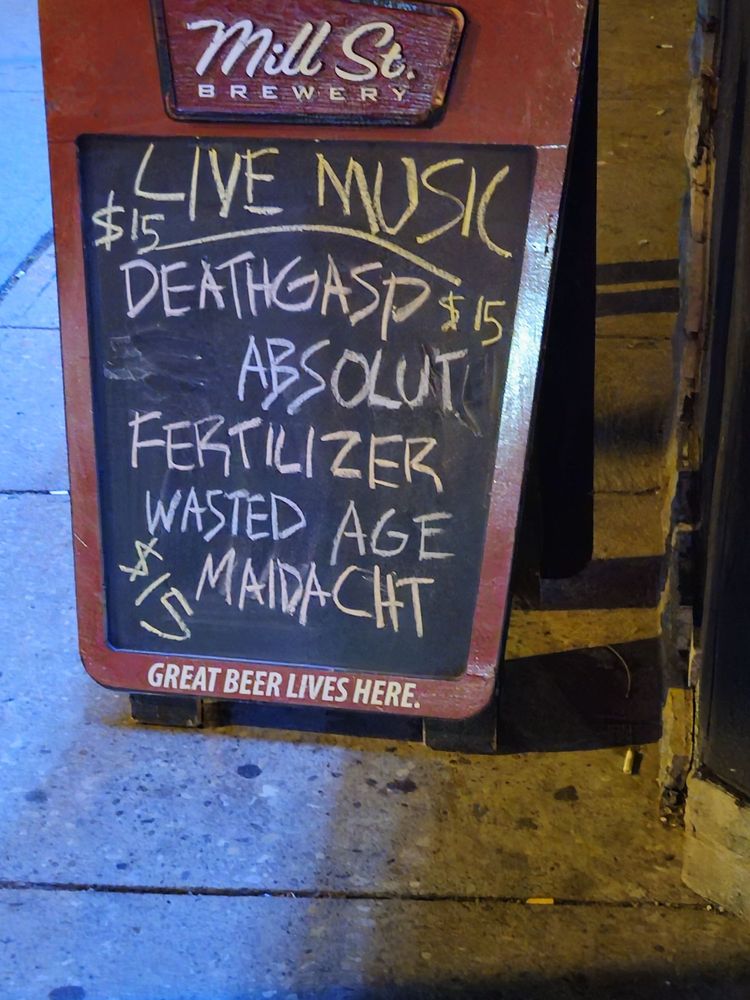 Mill St.
BREWERY
LIVE MUSIC
$15
DEATHGASP $15
ABSOLUT
FERTILIZER
WASTED AGE
$15 MAIDACHT
GREAT BEER LIVES HERE.